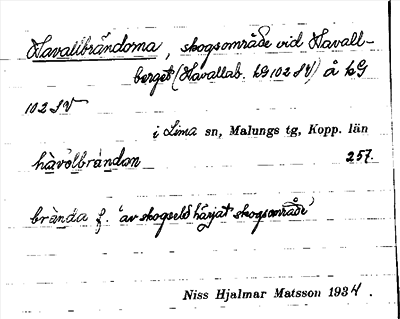 Havallbrändorna, skogsområde vid Havall-
berget (Havallab. hG 102 SV) å hG
102 SV
i Lima sn, Malungs tg, Kopp. län
hàvòlbrándọn 257.
brànda f. 'av skogseld härjat skogsområde'
Niss Hjalmar Matsson 1934.